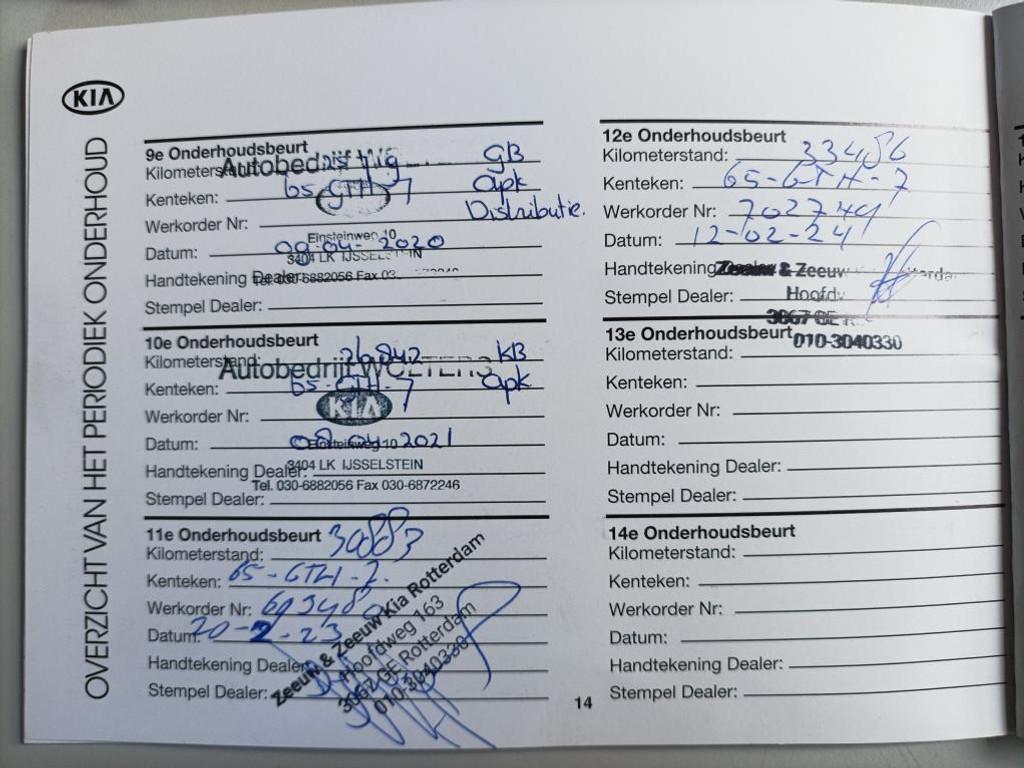 KIA
OVERZICHT VAN HET PERIODIEK ONDERHOUD
9e Onderhoudsbeurt
Autobedrijf
Kilometerstand:
GB
Kenteken: 65-GTH-7
apk
Distributie.
Werkorder Nr:
Einsteinweg 10
Datum: 09-04-2020
3404 LK IJSSELSTEIN
Handtekening Dealer:
Tel. 030-6882056 Fax 03
Stempel Dealer:
10e Onderhoudsbeurt
Kilometerstand: 26.842 KB
Autobedrijf WOLTERS
Kenteken: 65-GTH-7 apk
KIA
Werkorder Nr:
Datum: 08 04 2021
Einsteinweg 10
Handtekening Dealer:
3404 LK IJSSELSTEIN
Tel. 030-6882056 Fax 030-6872246
Stempel Dealer:
11e Onderhoudsbeurt
Kilometerstand: 30883
Kenteken: 65-GTH-7.
Werkorder Nr:
Datum: 20-2-23
Handtekening Dealer:
Stempel Dealer:
Zeeuw & Zeeuw Kia Rotterdam
Hoofdweg 163
3067 GE Rotterdam
010-3040330
12e Onderhoudsbeurt
Kilometerstand: 33486
Kenteken: 65-GTH-7
Werkorder Nr: 702749
Datum: 12-02-24
Handtekening
Zeeuw & Zeeuw
Stempel Dealer:
3067 GE
010-3040330
13e Onderhoudsbeurt
Kilometerstand:
Kenteken:
Werkorder Nr:
Datum:
Handtekening Dealer:
Stempel Dealer:
14e Onderhoudsbeurt
Kilometerstand:
Kenteken:
Werkorder Nr:
Datum:
Handtekening Dealer:
Stempel Dealer:
14